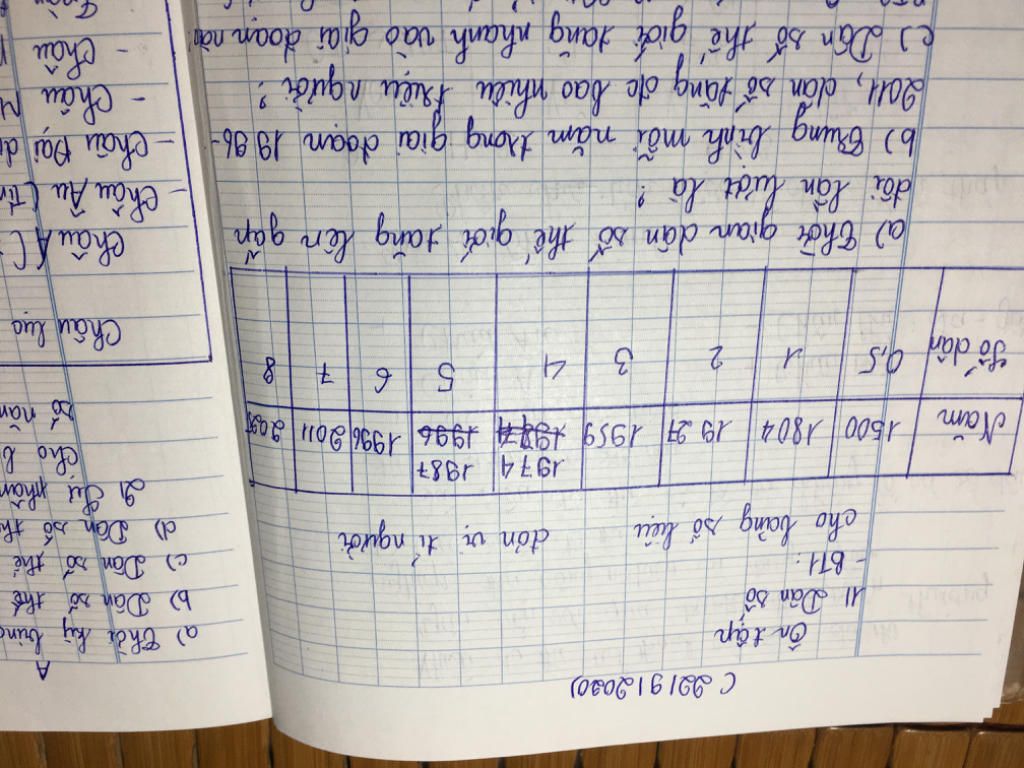 ( 22/9/2020)
Ôn tập
1) Dân số
- BT1:
Cho bảng số liệu đơn vị tỉ người
Năm 1500 1804 1927 1959 1974 1987 1996 2011
Số dân 0,5 1 2 3 4 5 6 7 8
a) Thời gian dân số thế giới tăng lên gấp
đôi lần lượt là?
b) Trung bình mỗi năm trong giai đoạn 1996-
2011, dân số tăng đc bao nhiêu triệu người?
c) Dân số thế giới tăng nhanh vào giai đoạn nào
A
a) Thời kỳ bùng
b) Dân số thế
c) Dân số thế
d) Dân số
2) Sự phân
Cho b
số
Châu lục
Châu Á (
- Châu Âu (
- Châu Đại d
- Châu
- Châu